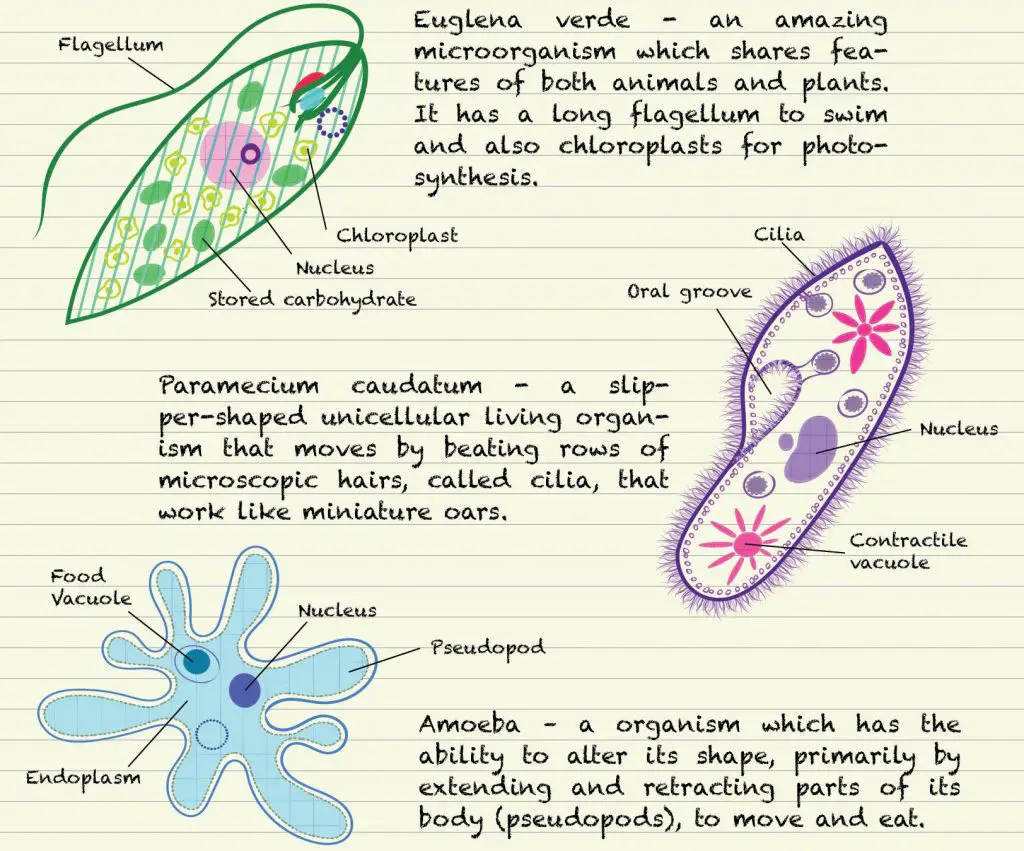 Flagellum
Euglena verde - an amazing
microorganism which shares fea-
tures of both animals and plants.
It has a long flagellum to swim
and also chloroplasts for photo-
synthesis.
Chloroplast
Nucleus
Stored carbohydrate
Cilia
Oral groove
Nucleus
Contractile
vacuole
Paramecium caudatum - a slip-
per-shaped unicellular living organ-
ism that moves by beating rows of
microscopic hairs, called cilia, that
work like miniature oars.
Food
Vacuole
Nucleus
Pseudopod
Endoplasm
Amoeba - a organism which has the
ability to alter its shape, primarily by
extending and retracting parts of its
body (pseudopods), to move and eat.